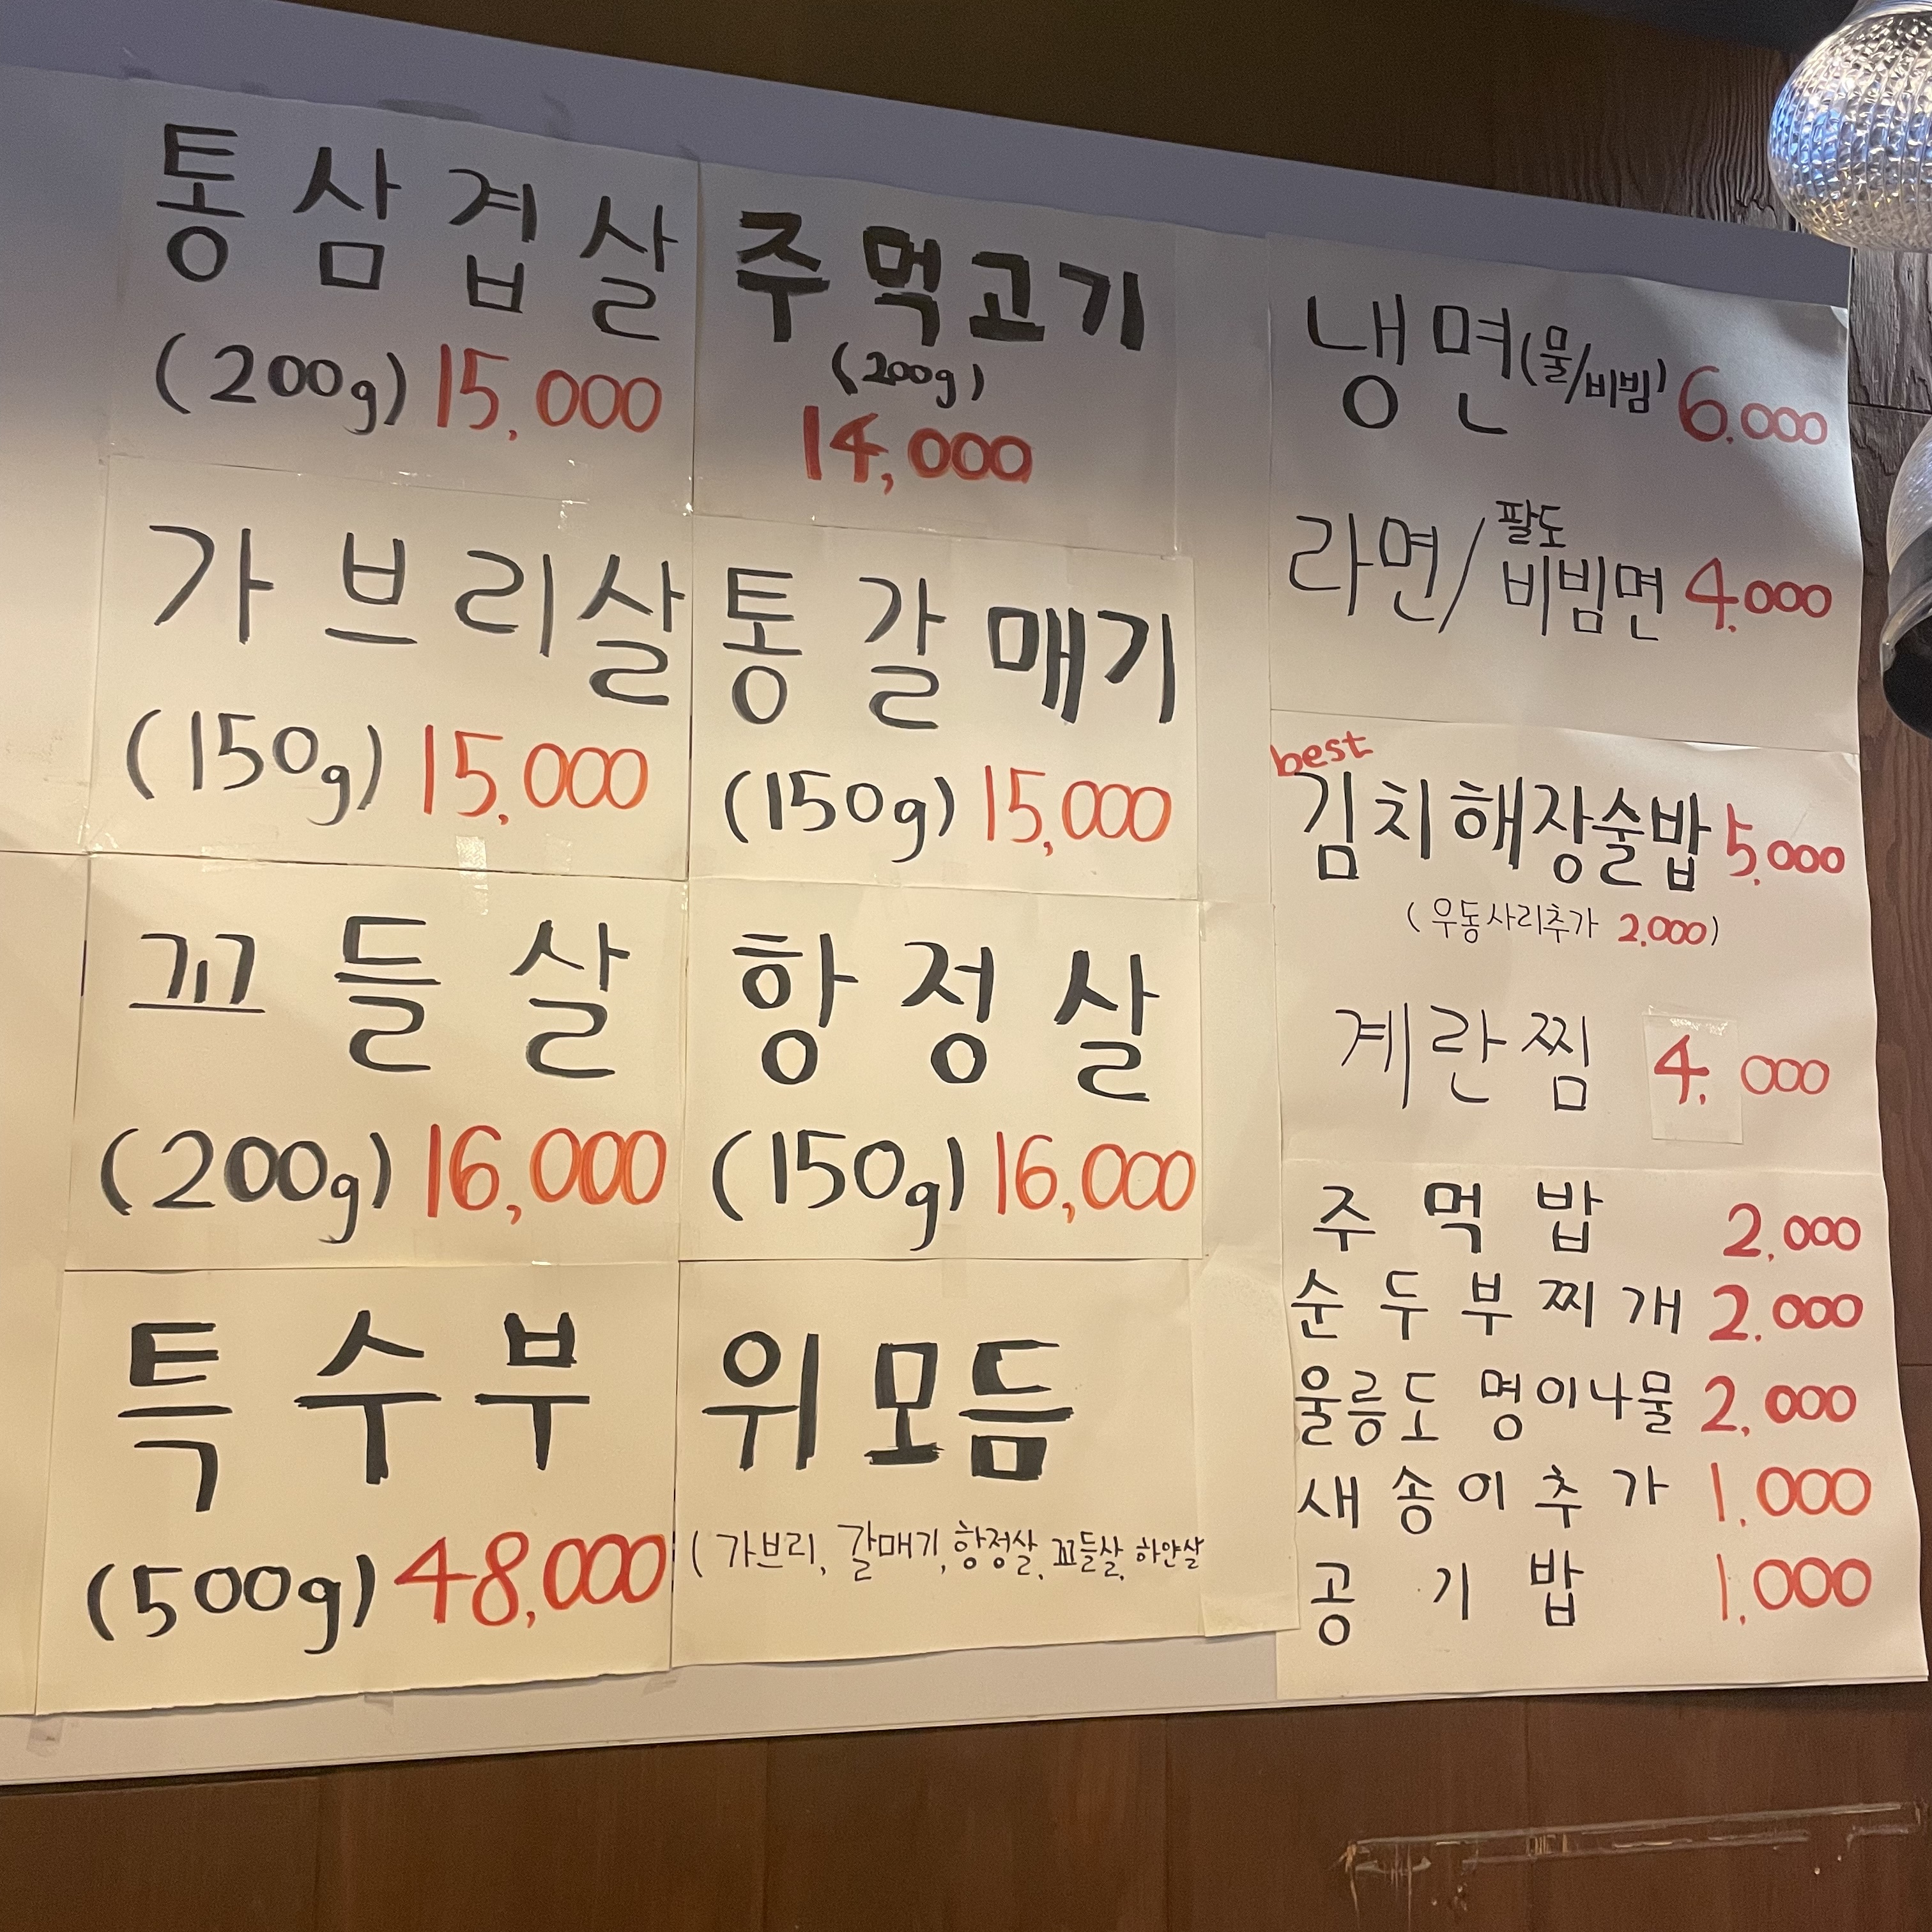 통삼겹살
(200g) 15,000
주먹고기
(200g)
14,000
가브리살
(150g) 15,000
통갈매기
(150g) 15,000
꼬들살
(200g) 16,000
항정살
(150g) 16,000
특수부위모듬
(500g) 48,000
(가브리, 갈매기, 항정살, 꼬들살, 하얀살
냉면(물/비빔) 6.000
라면/팔도비빔면 4.000
best
김치해장술밥 5.000
(우동사리추가 2.000)
계란찜 4.000
주먹밥 2.000
순두부찌개 2.000
울릉도 명이나물 2,000
새송이추가 1.000
공기밥 1.000